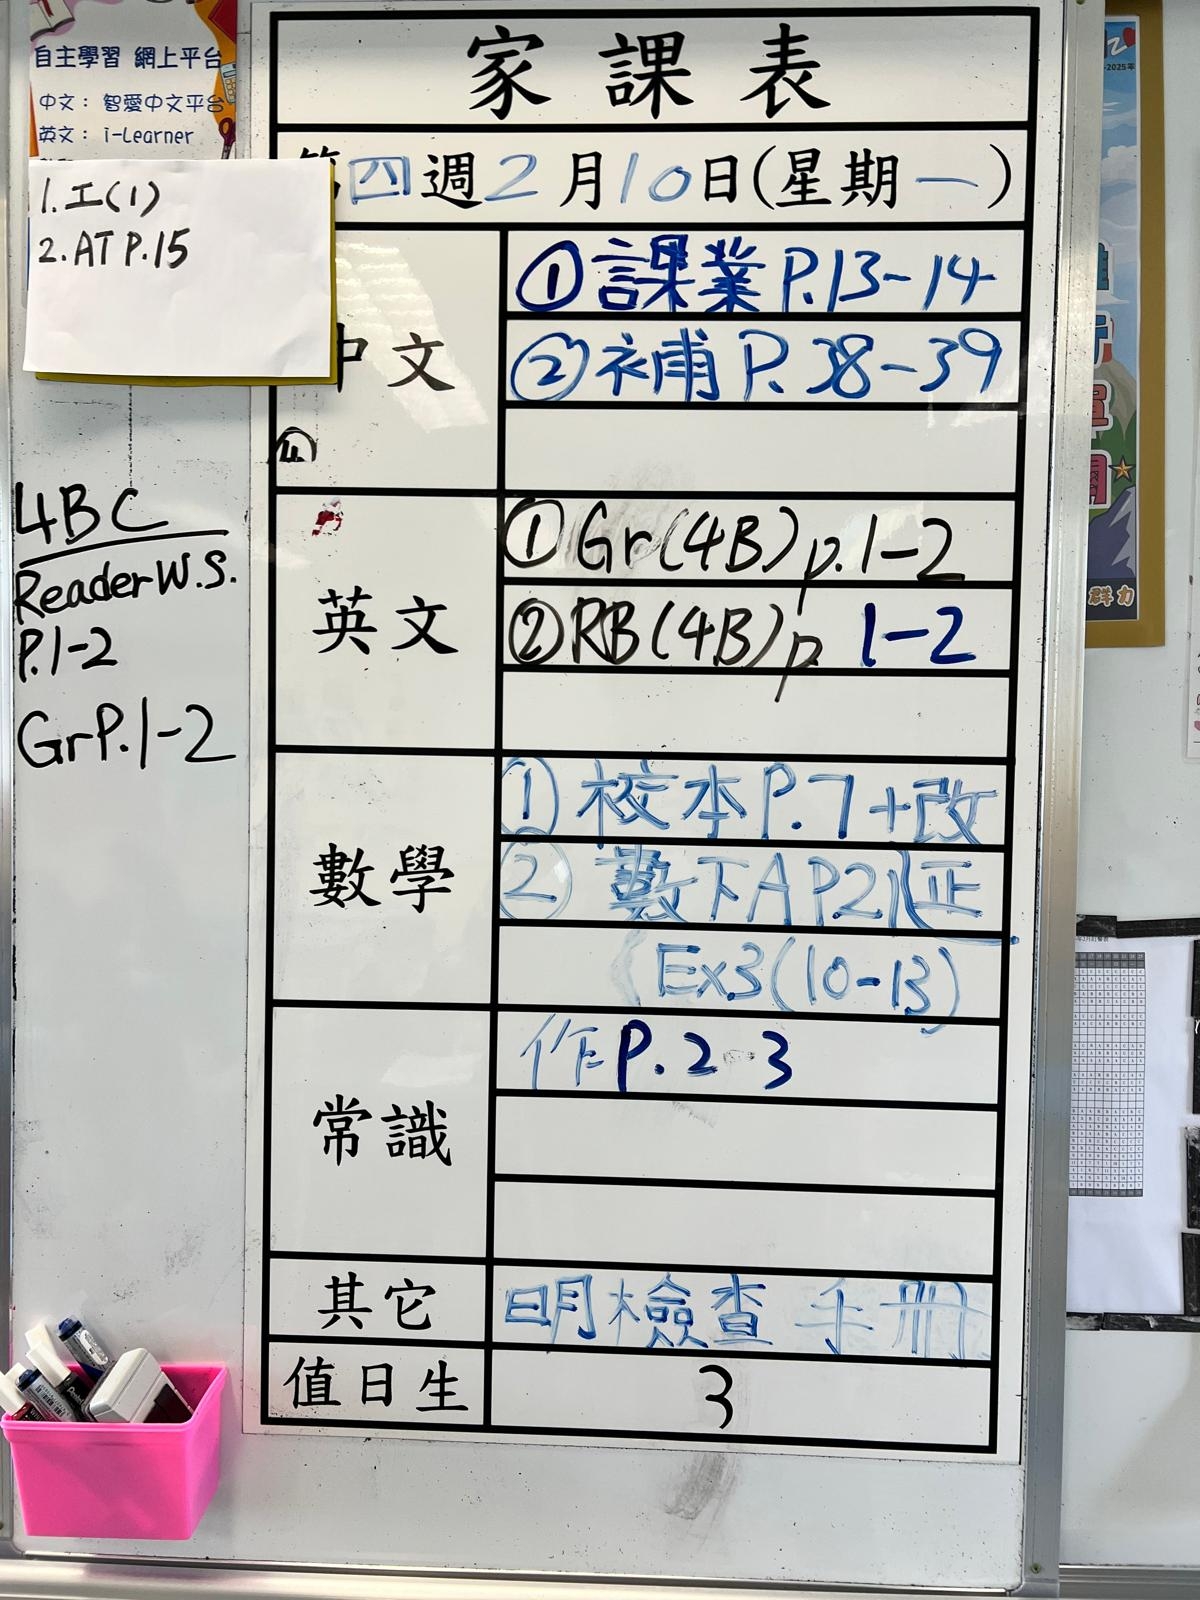 自主學習 網上平台
中文： 智愛中文平台
英文： i-Learner
1. 工(1)
2. AT P.15
4BC
Reader W.S.
P.1-2
Gr P.1-2
家課表
第四週2月10日(星期一)
中文
① 課業 P.13-14
② 補 P.38-39
④
英文
① Gr(4B) p.1-2
② RB(4B) p 1-2
數學
① 校本 P.7+改
② 數下A P21
(Ex3(10-13)
常識
作 P.2-3
其它
明檢查 手冊
值日生
3
-2025年
群力